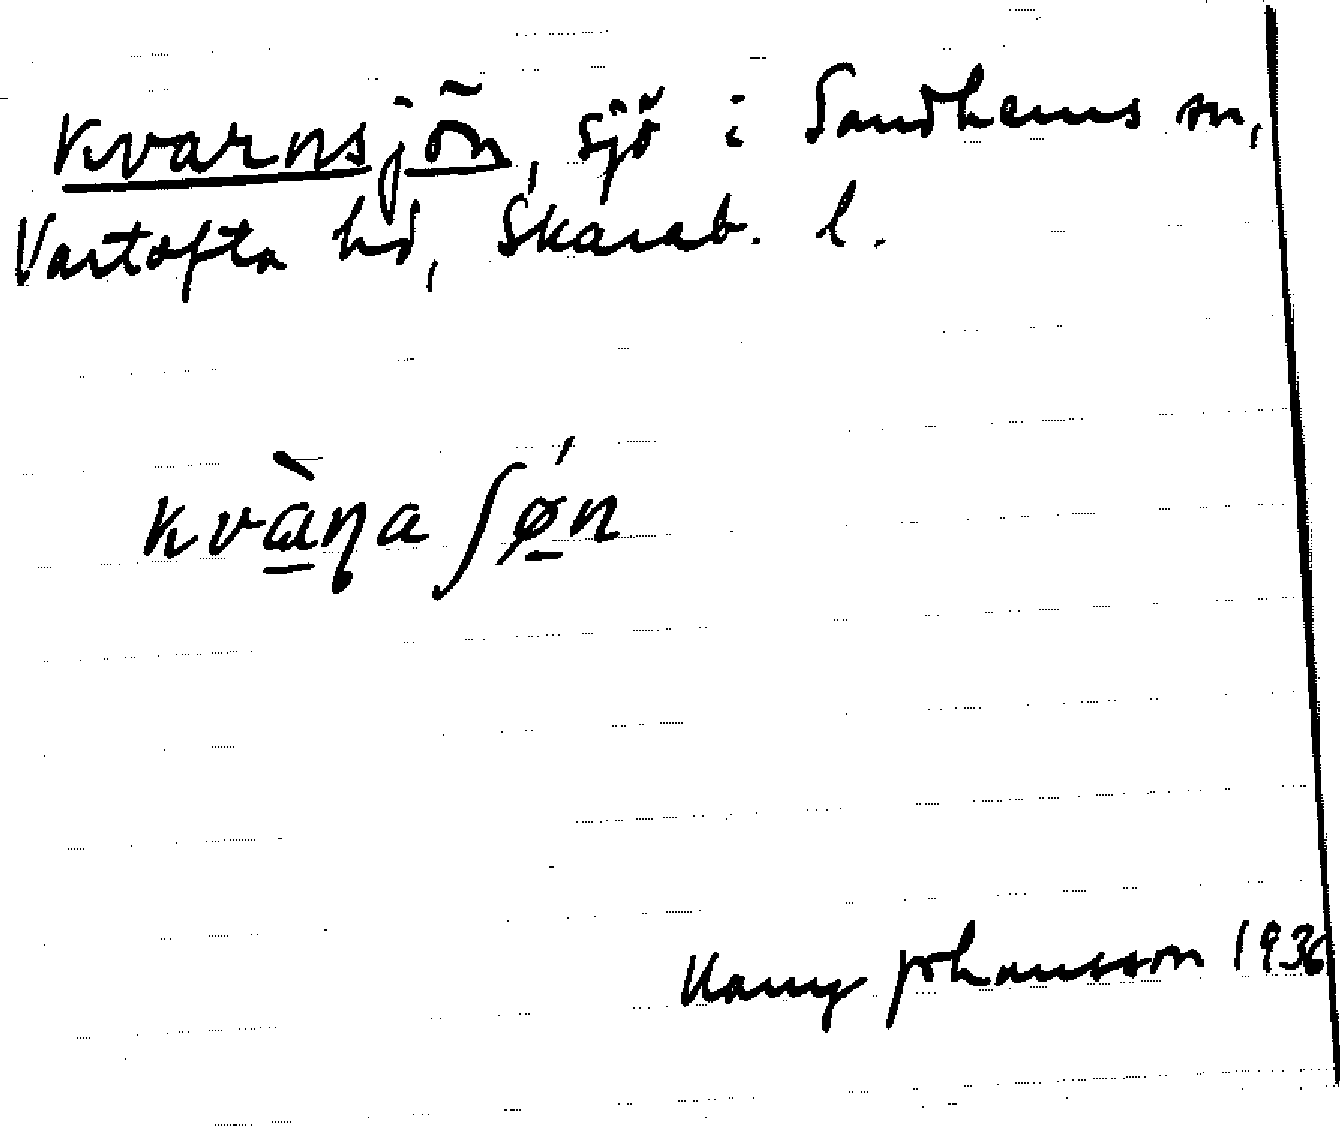 Kvarnsjön, sjö i Sandhems sn,
Vartofta hd, Skarab. l.
kvàɳa ʃǿn
Johansson 1936